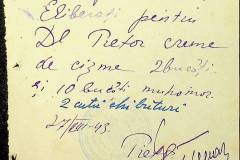 Eliberați pentru
Dl Pretor creme
de cizme 2 bucăți
și 10 bucăți muhomor
2 cutii chibrituri
27/VIII-43.
Pretor